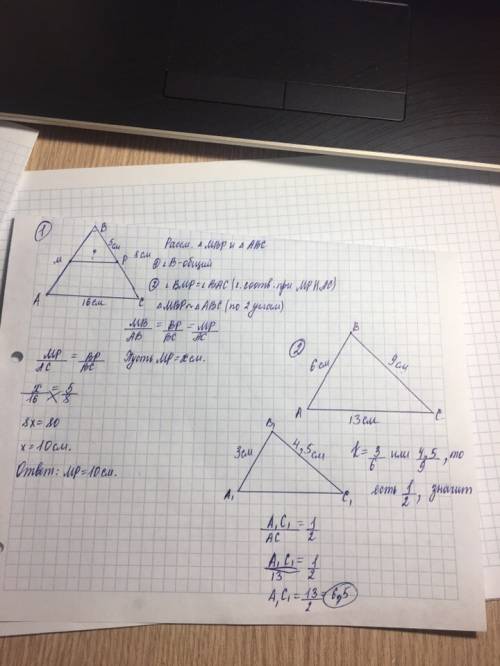 ①
B
5см
M
P
8см
A
16см
C
Рассм. ▵MBP и ▵ABC
① ∠B-общий
② ∠BMP=∠BAC (∠ соотв. при MP||AC)
▵MBP~▵ABC (по 2 углам)
MB/AB = BP/BC = MP/AC
MP/AC = BP/BC Пусть MP=x см.
x/16 = 5/8
8x=80
x=10см.
Ответ: MP=10см.
②
B
6см
9см
A
13см
C
B₁
3см
4,5см
A₁
C₁
k=3/6 или 4,5/9, то
есть 1/2, значит
A₁C₁/AC = 1/2
A₁C₁/13 = 1/2
A₁C₁=13/2=6,5